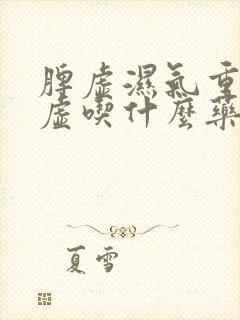 脾虛濕氣重
虛喫什麼藥
夏雪